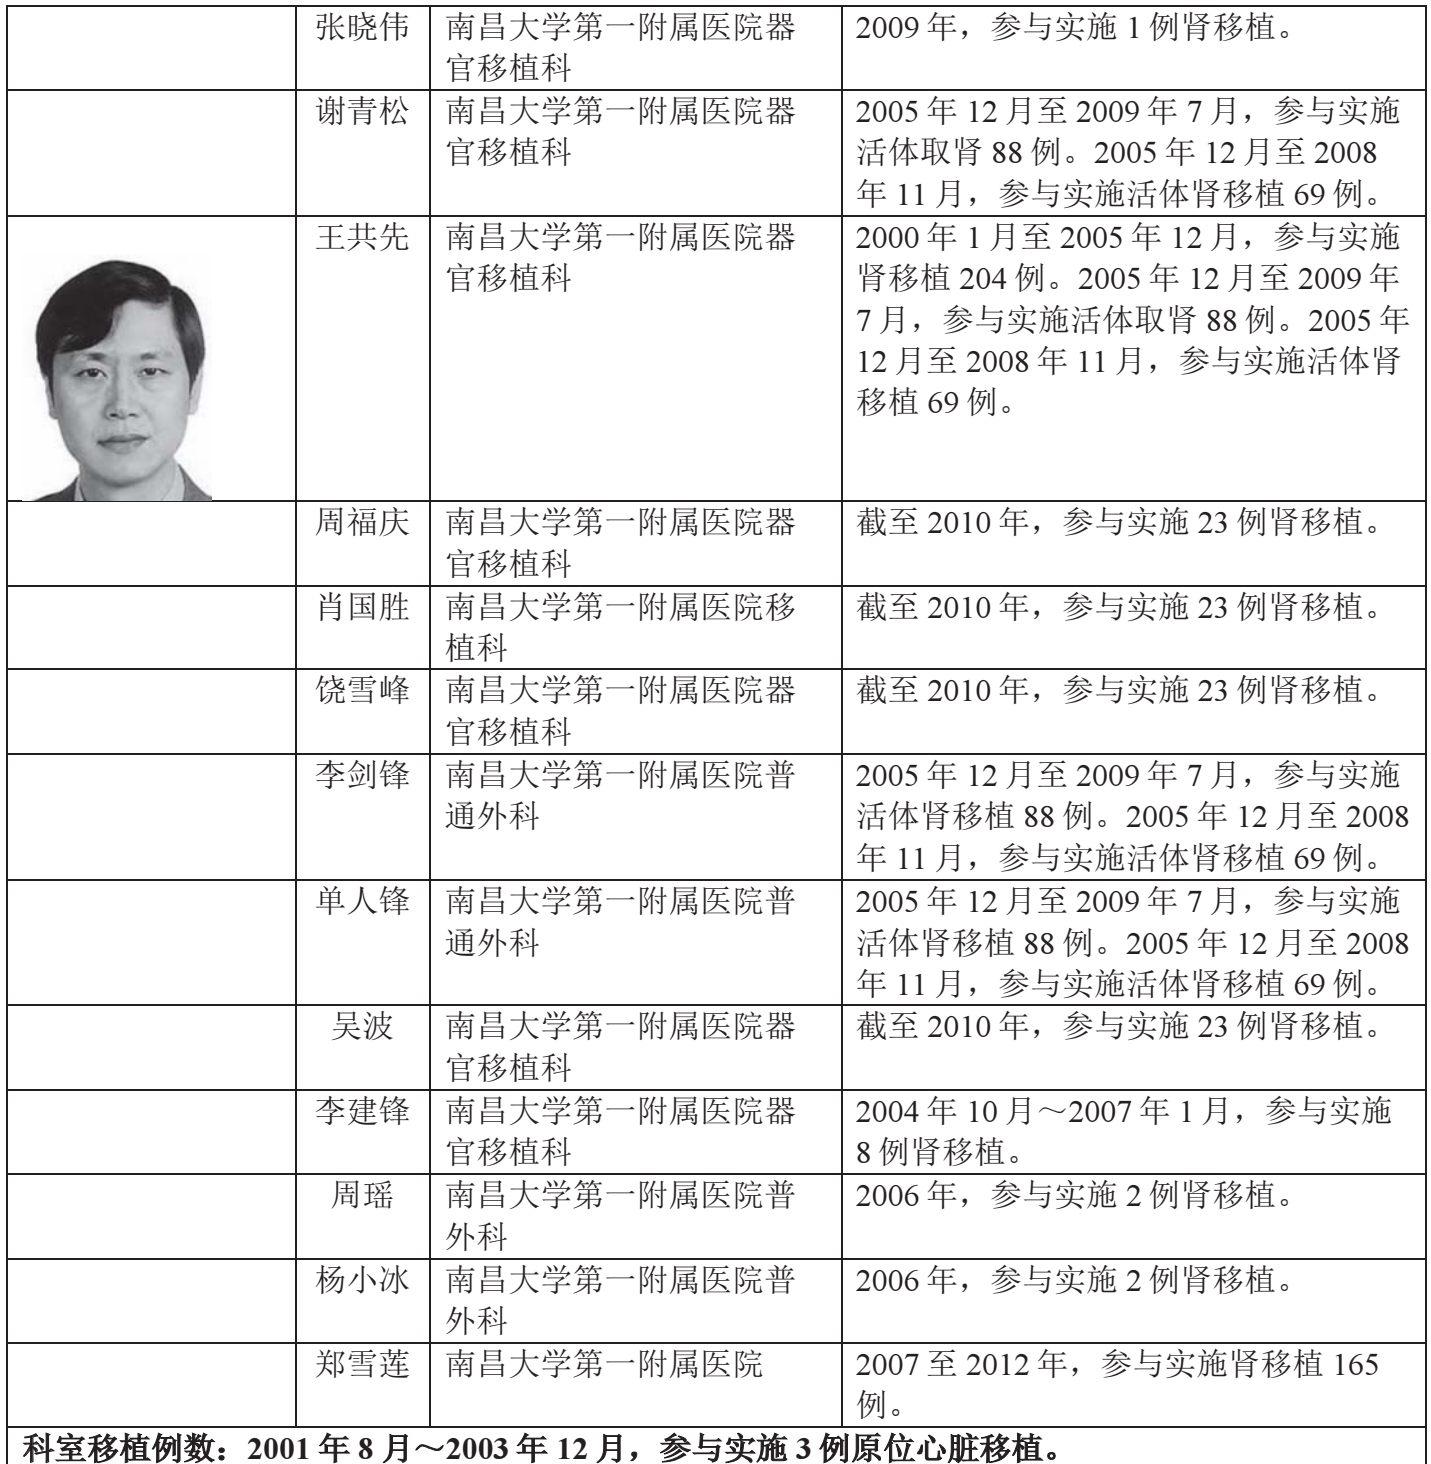 张晓伟
南昌大学第一附属医院器
官移植科
2009 年，参与实施 1 例肾移植。
谢青松
南昌大学第一附属医院器
官移植科
2005 年 12 月至 2009 年 7 月，参与实施
活体取肾 88 例。2005 年 12 月至 2008
年 11 月，参与实施活体肾移植 69 例。
王共先
南昌大学第一附属医院器
官移植科
2000 年 1 月至 2005 年 12 月，参与实施
肾移植 204 例。2005 年 12 月至 2009 年
7 月，参与实施活体取肾 88 例。2005 年
12 月至 2008 年 11 月，参与实施活体肾
移植 69 例。
周福庆
南昌大学第一附属医院器
官移植科
截至 2010 年，参与实施 23 例肾移植。
肖国胜
南昌大学第一附属医院移
植科
截至 2010 年，参与实施 23 例肾移植。
饶雪峰
南昌大学第一附属医院器
官移植科
截至 2010 年，参与实施 23 例肾移植。
李剑锋
南昌大学第一附属医院普
通外科
2005 年 12 月至 2009 年 7 月，参与实施
活体肾移植 88 例。2005 年 12 月至 2008
年 11 月，参与实施活体肾移植 69 例。
单人锋
南昌大学第一附属医院普
通外科
2005 年 12 月至 2009 年 7 月，参与实施
活体肾移植 88 例。2005 年 12 月至 2008
年 11 月，参与实施活体肾移植 69 例。
吴波
南昌大学第一附属医院器
官移植科
截至 2010 年，参与实施 23 例肾移植。
李建锋
南昌大学第一附属医院器
官移植科
2004 年 10 月～2007 年 1 月，参与实施
8 例肾移植。
周瑶
南昌大学第一附属医院普
外科
2006 年，参与实施 2 例肾移植。
杨小冰
南昌大学第一附属医院普
外科
2006 年，参与实施 2 例肾移植。
郑雪莲
南昌大学第一附属医院
2007 至 2012 年，参与实施肾移植 165
例。
科室移植例数：2001 年 8 月～2003 年 12 月，参与实施 3 例原位心脏移植。